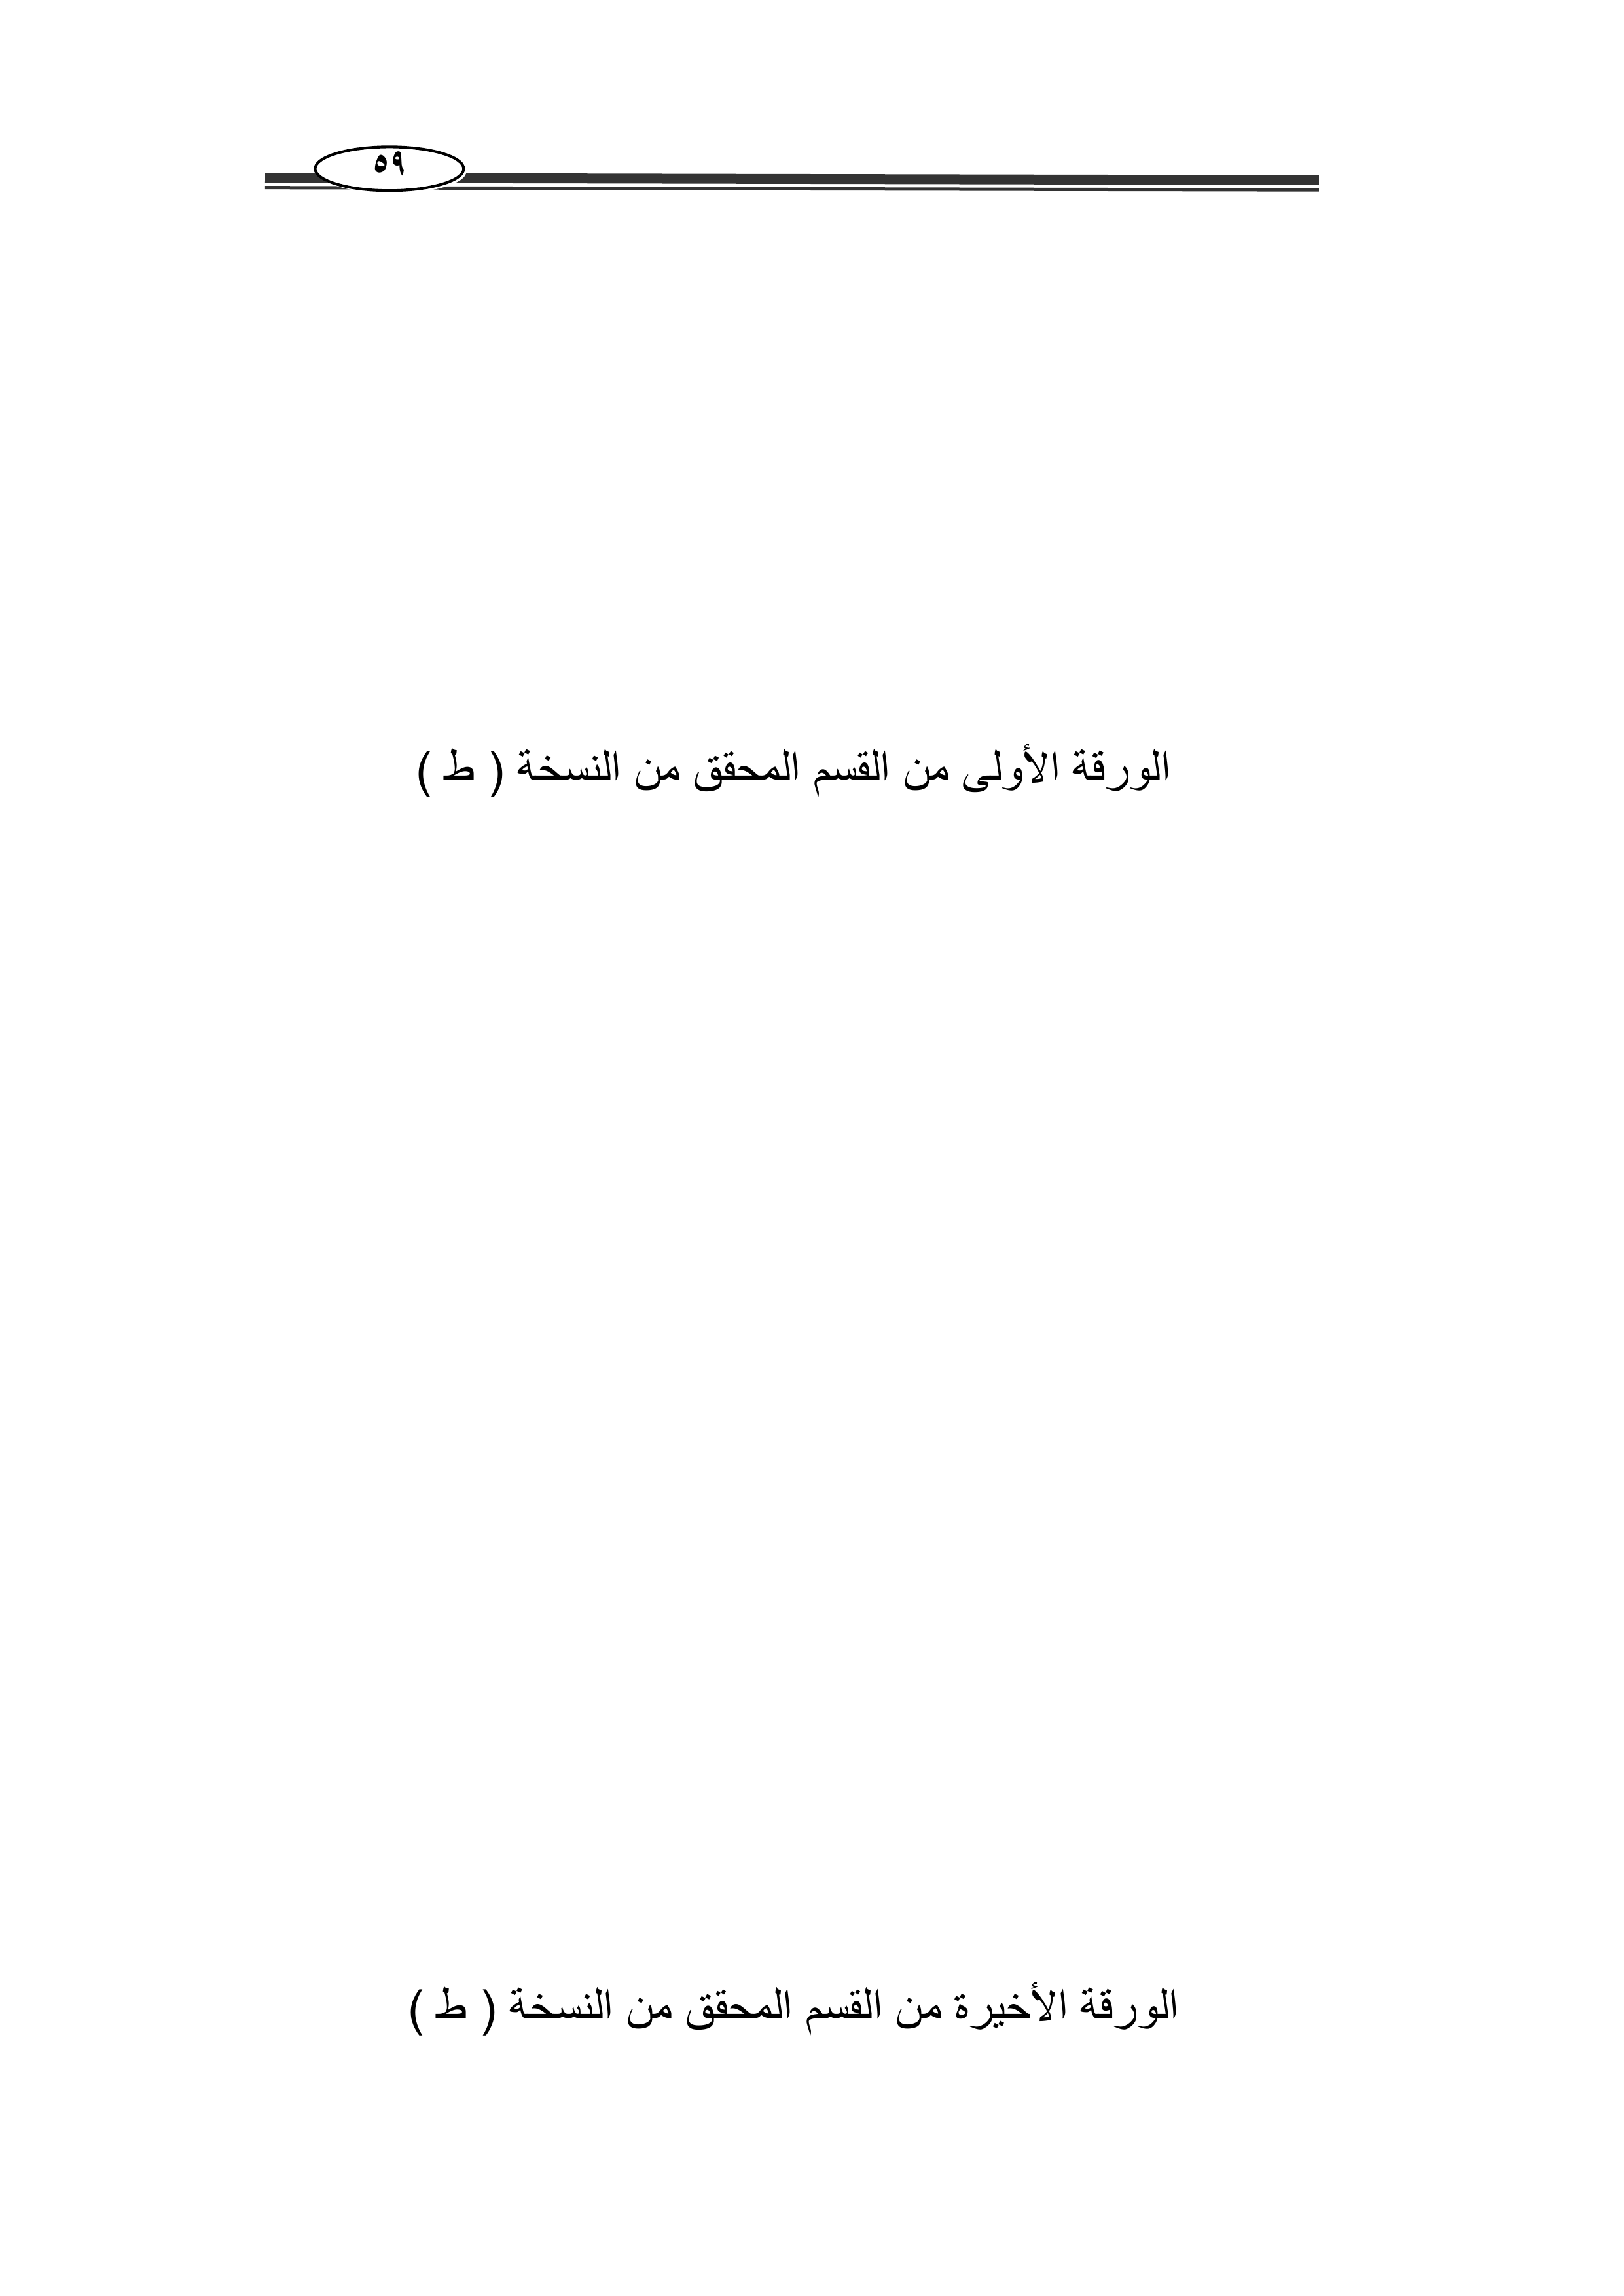 ٥٩
الورقة الأولى من القسم المحقق من النسخة ( ط )
الورقة الأخيرة من القسم المحقق من النسخة ( ط )